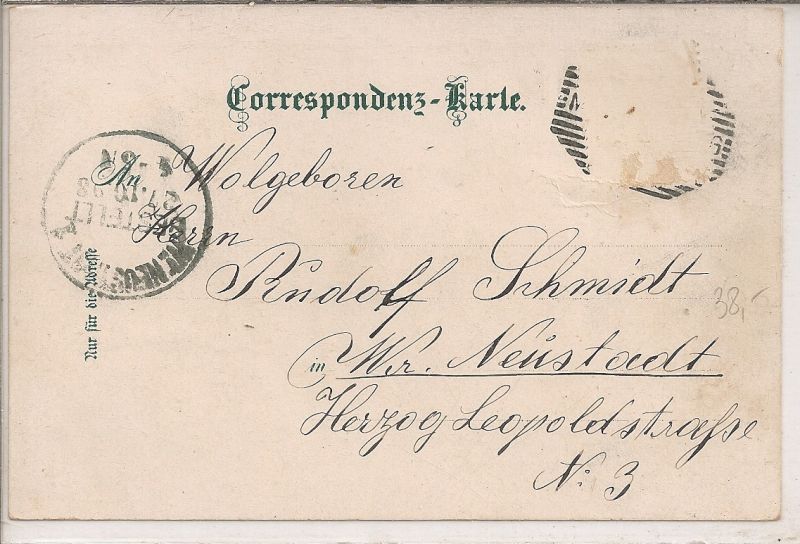 Correspondenz-Karte.
An Wolgeboren
Herrn
Rudolf Schmidt
in Wr. Neustadt
Herzog Leopoldstraße
N: 3
Nur für die Adresse
38,